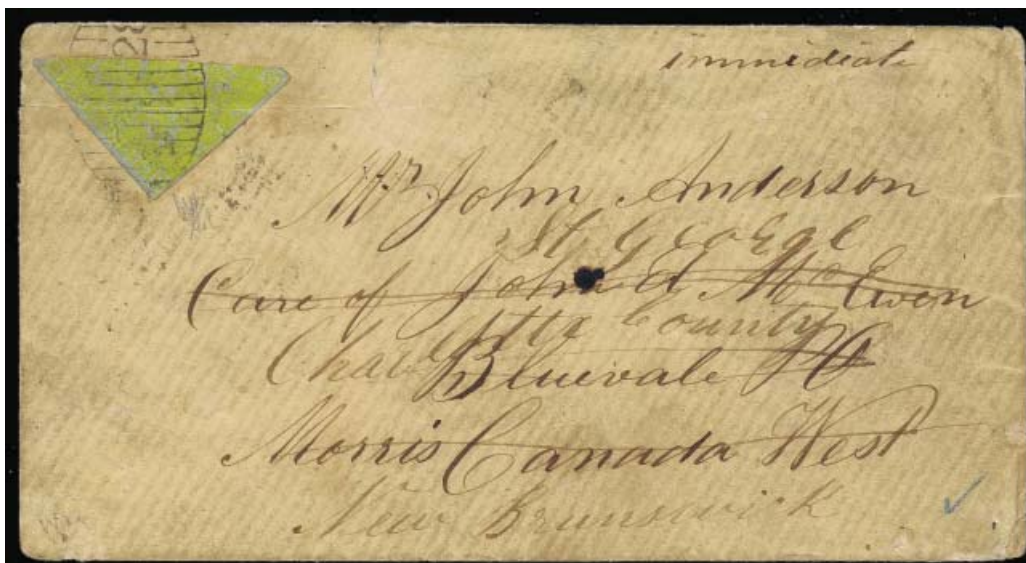 28
immediate
Mr John Anderson
St George
Care of John A McEwen
Charlotte County
Bluevale PO
Morris Canada West
New Brunswick